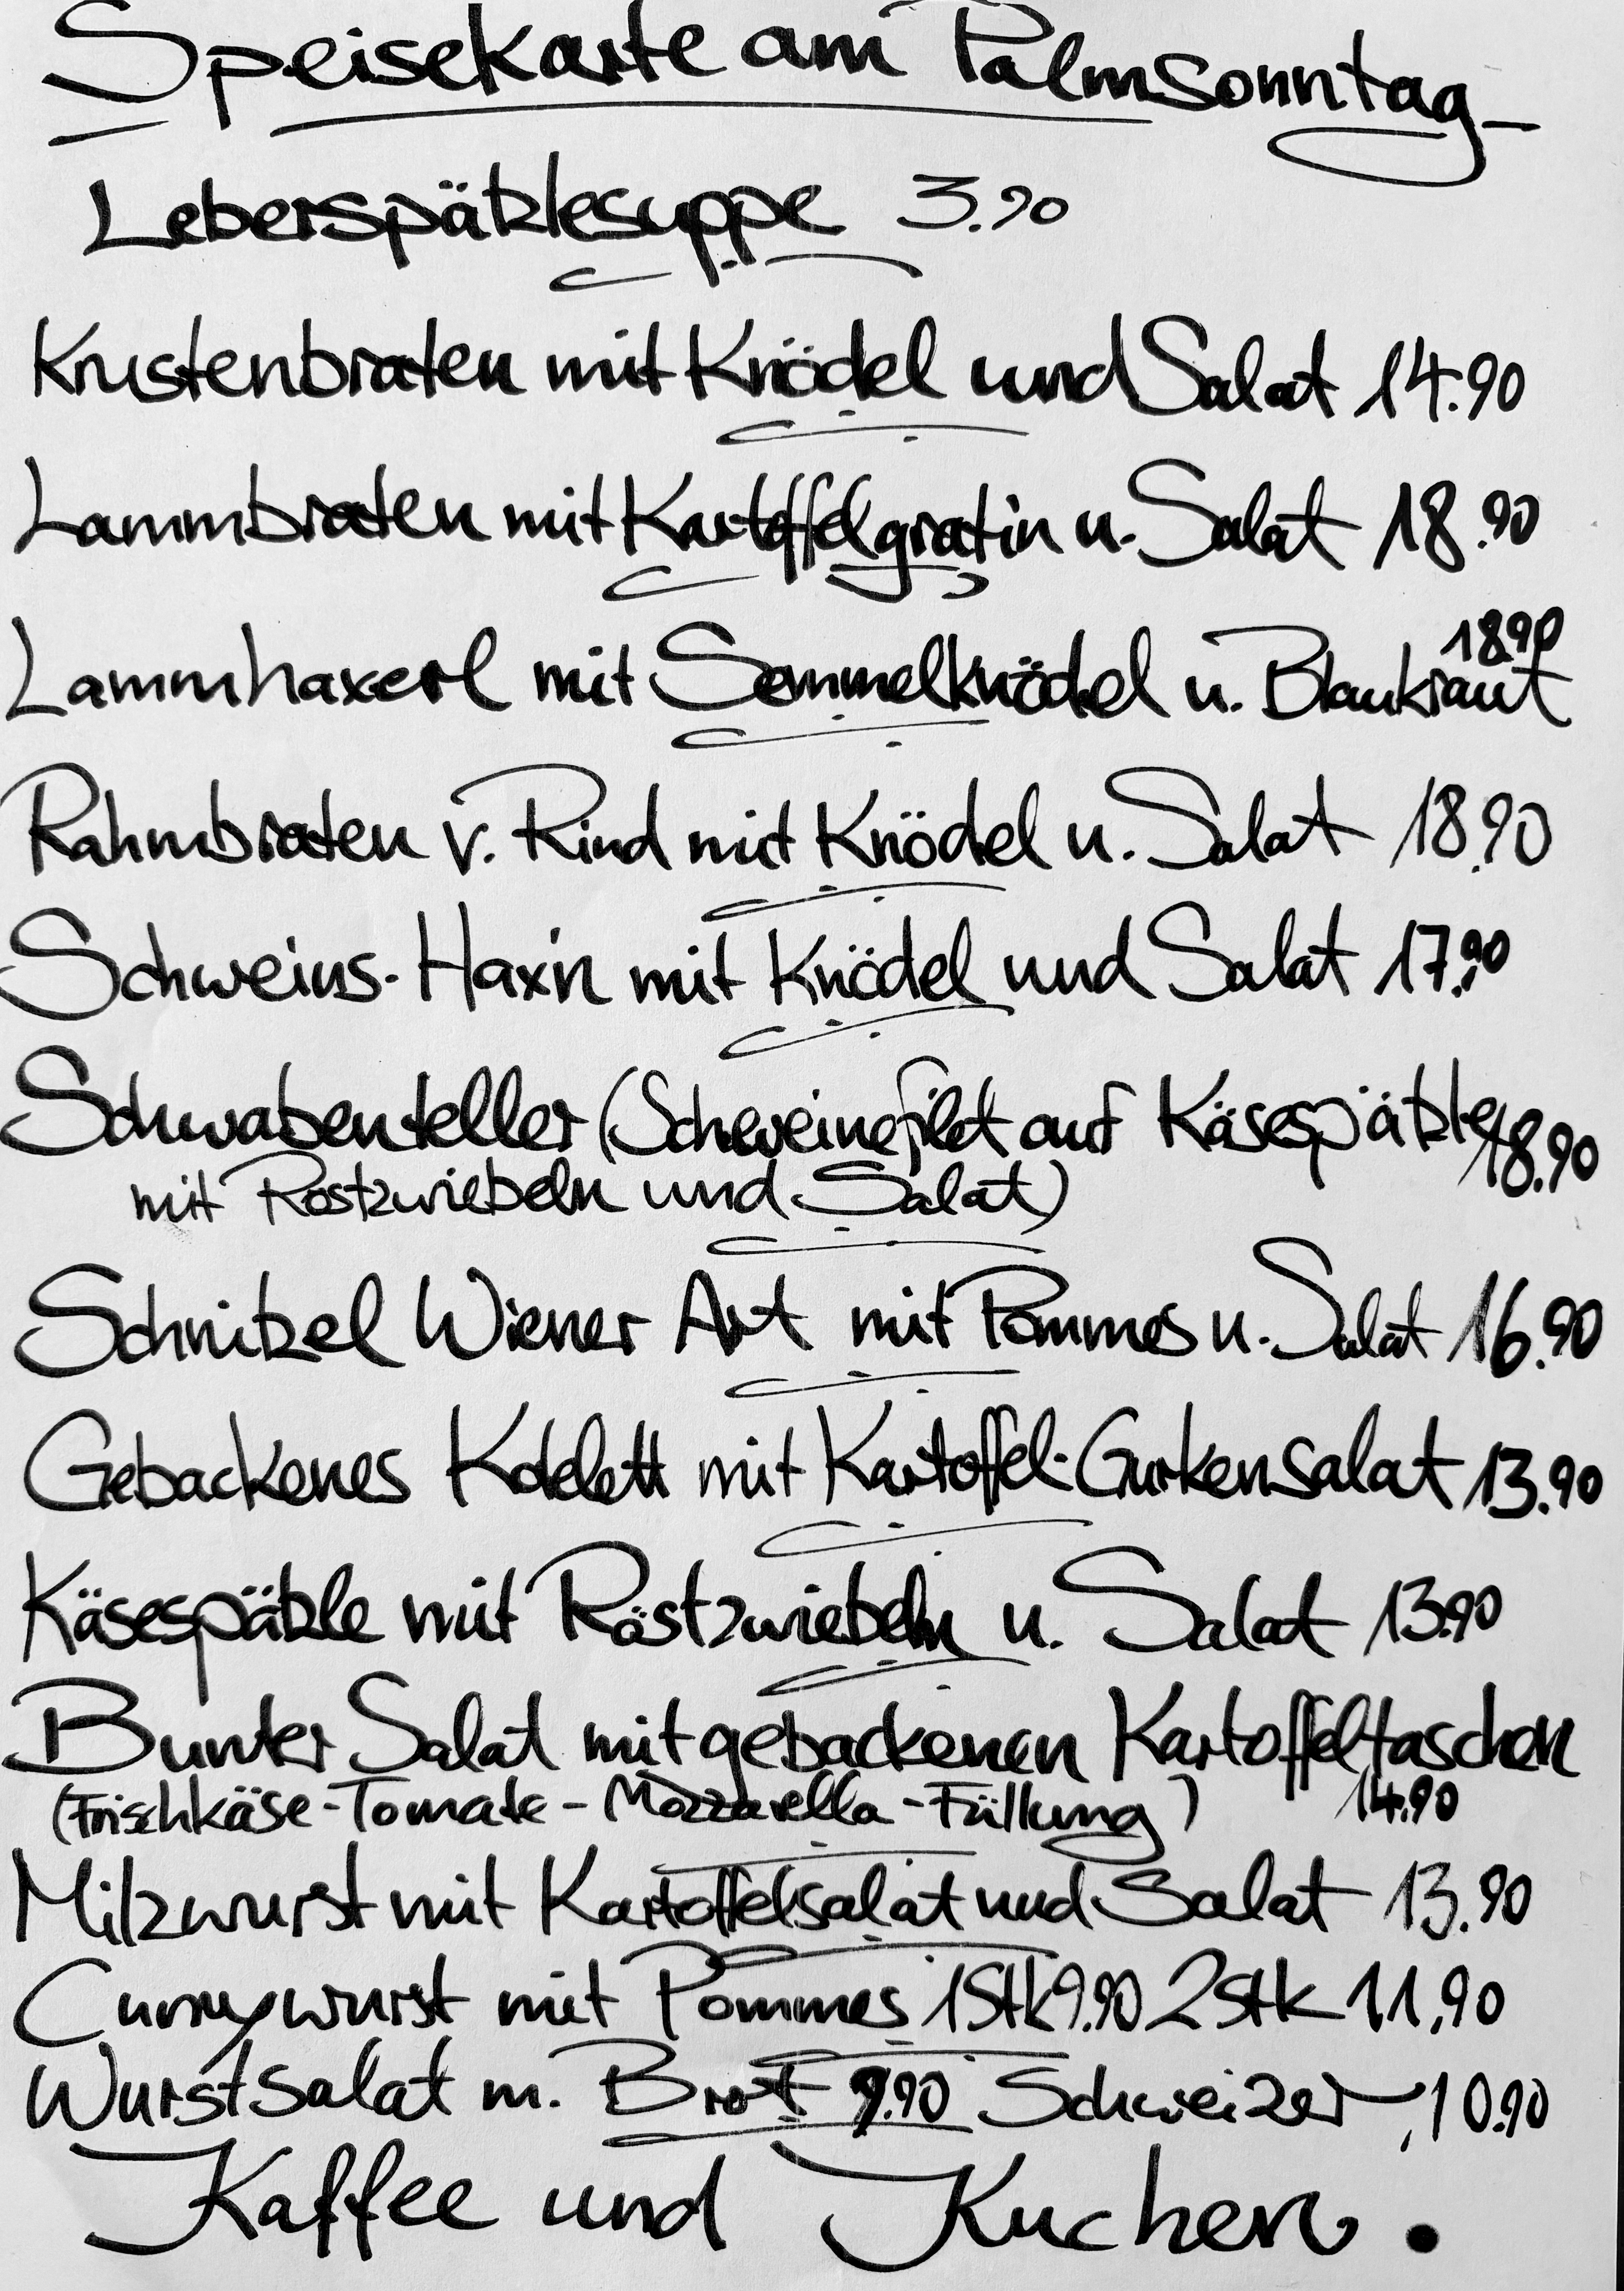 Speisekarte am Palmsonntag
Leberspätzlesuppe 3.90
Krustenbraten mit Knödel und Salat 14.90
Lammbraten mit Kartoffelgratin u. Salat 18.90
18.90
Lammhaxerl mit Semmelknödel u. Blaukraut
Rahmbraten v. Rind mit Knödel u. Salat 18.90
Schweins-Hax'n mit Knödel und Salat 17.90
Schwabenteller (Schweinefilet auf Käsespätzle 18.90
mit Röstzwiebeln und Salat)
Schnitzel Wiener Art mit Pommes u. Salat 16.90
Gebackenes Kotelett mit Kartoffel-Gurkensalat 13.90
Käsespätzle mit Röstzwiebeln u. Salat 13.90
Bunter Salat mit gebackenen Kartoffeltaschen
(Frischkäse-Tomate-Mozzarella-Füllung) 14.90
Milzwurst mit Kartoffelsalat und Salat 13.90
Currywurst mit Pommes 1Stk 9.90 2Stk 11,90
Wurstsalat m. Brot 9.90 Schweizer 10.90
Kaffee und Kuchen.